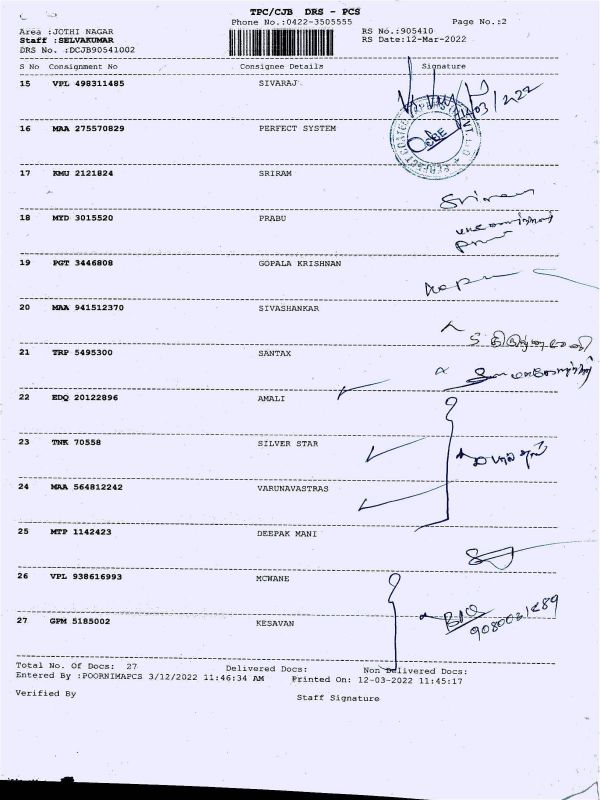 TPC/CJB DRS - PCS
Phone No.:0422-3505555 Page No.:2
Area :JOTHI NAGAR RS No.:905410
Staff :SELVAKUMAR RS Date:12-Mar-2022
DRS No. :DCJB90541002
S No Consignment No Consignee Details Signature
15 VPL 498311485 SIVARAJ
16 MAA 275570829 PERFECT SYSTEM
17 KMU 2121824 SRIRAM
Sriram
18 MYD 3015520 PRABU
19 PGT 3446808 GOPALA KRISHNAN
20 MAA 941512370 SIVASHANKAR
21 TRP 5495300 SANTAX
22 EDQ 20122896 AMALI
23 TNK 70558 SILVER STAR
24 MAA 564812242 VARUNAVASTRAS
25 MTP 1142423 DEEPAK MANI
26 VPL 938616993 MCWANE
27 GPM 5185002 KESAVAN
Total No. Of Docs: 27 Delivered Docs: Non Delivered Docs:
Entered By :POORNIMAPCS 3/12/2022 11:46:34 AM Printed On: 12-03-2022 11:45:17
Verified By Staff Signature